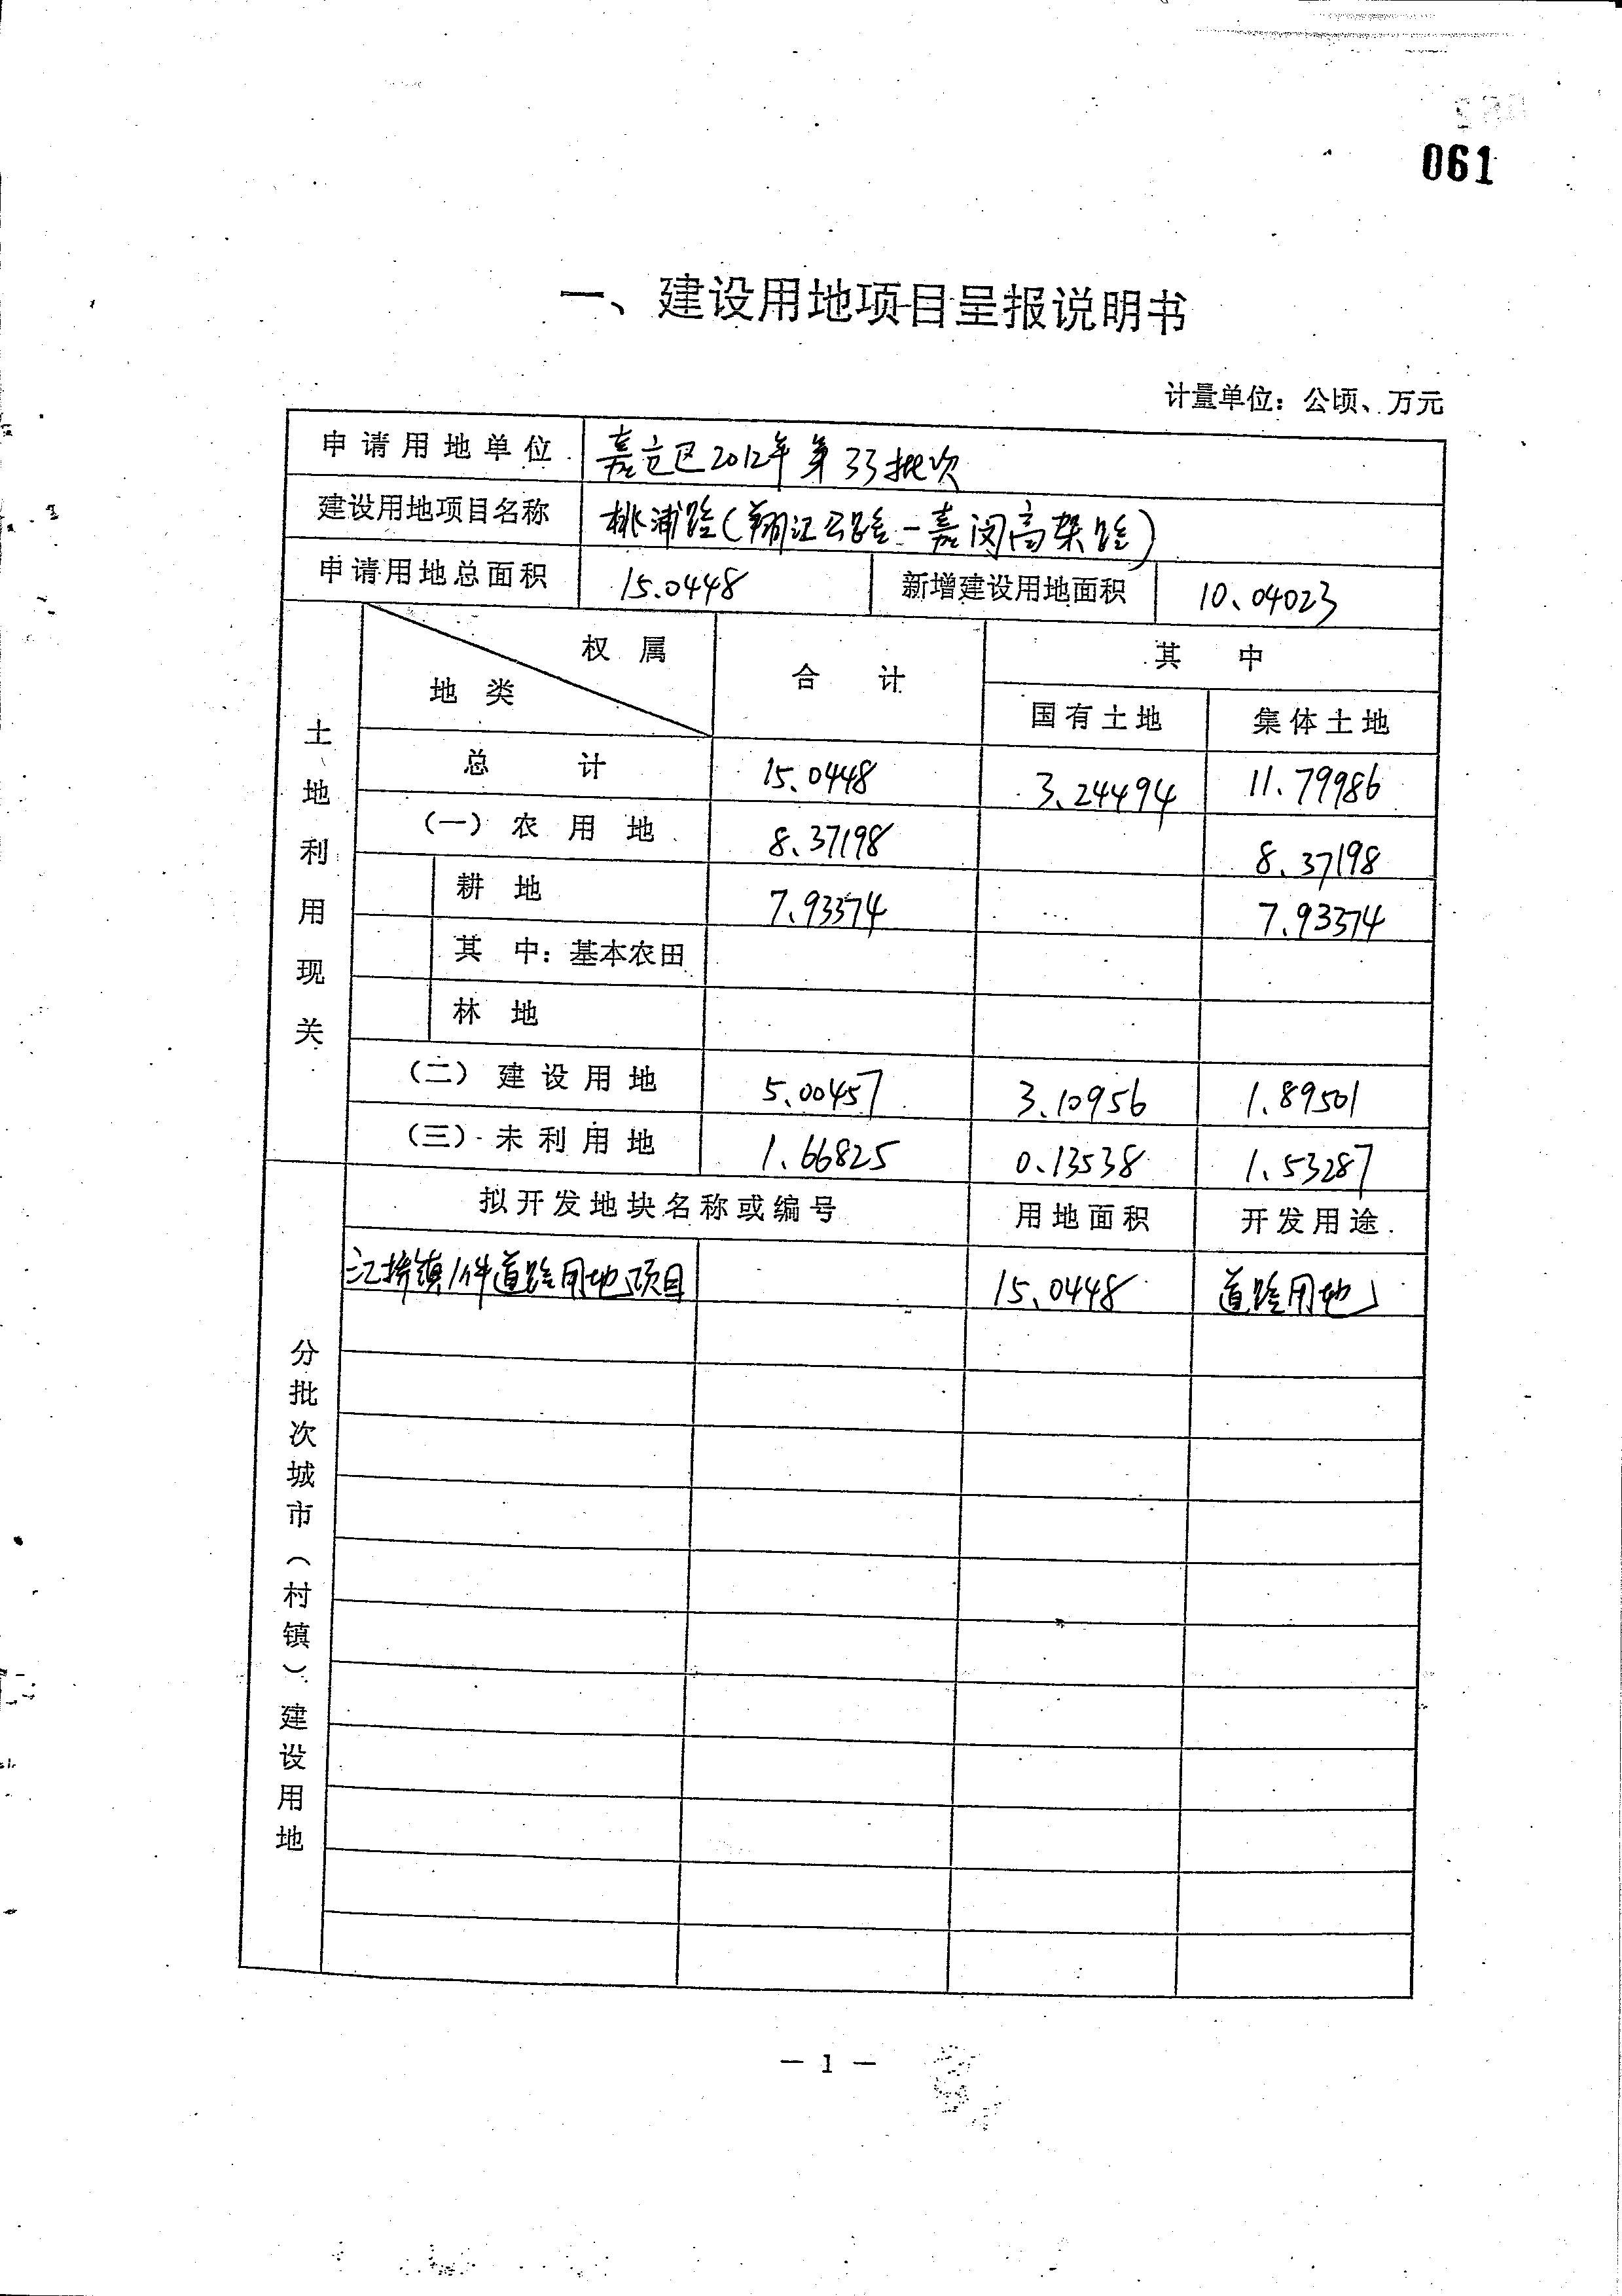 061
一、建设用地项目呈报说明书
计量单位：公顷、万元
申请用地单位 嘉定区2012年第33批次
建设用地项目名称 桃浦路(翔江公路-嘉闵高架路)
申请用地总面积 15.0448 新增建设用地面积 10.04023
土地利用现关
权属
地类
合计
其中
国有土地 集体土地
总计 15.0448 3.24494 11.79986
（一）农用地 8.37198 8.37198
耕地 7.93374 7.93374
其中：基本农田
林地
（二）建设用地 5.00457 3.10956 1.89501
（三）未利用地 1.66825 0.13538 1.53287
分批次城市（村镇）建设用地
拟开发地块名称或编号 用地面积 开发用途
江桥镇1件道路用地项目 15.0448 道路用地
— 1 —